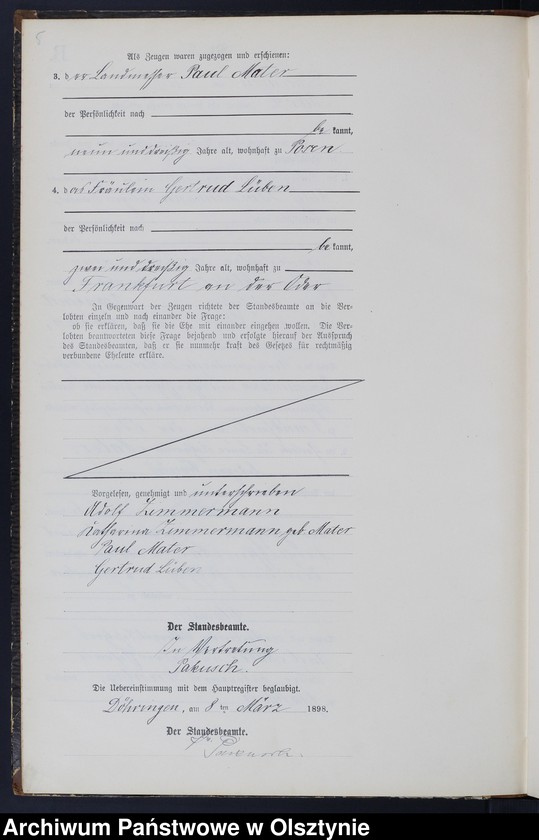 Als Zeugen waren zugezogen und erschienen:
3. der Landmesser Paul Mater
der Persönlichkeit nach
be kannt,
neun und dreißig Jahre alt, wohnhaft zu Posen
4. das Fräulein Gertrud Lüben
der Persönlichkeit nach
be kannt,
zwei und dreißig Jahre alt, wohnhaft zu
Frankfurt an der Oder
In Gegenwart der Zeugen richtete der Standesbeamte an die Ver-
lobten einzeln und nach einander die Frage:
ob sie erklären, daß sie die Ehe mit einander eingehen wollen. Die Ver-
lobten beantworteten diese Frage bejahend und erfolgte hierauf der Ausspruch
des Standesbeamten, daß er sie nunmehr kraft des Gesetzes für rechtmäßig
verbundene Eheleute erkläre.
Vorgelesen, genehmigt und unterschrieben
Adolf Zimmermann
Katharina Zimmermann geb. Mater
Paul Mater
Gertrud Lüben
Der Standesbeamte.
In Vertretung
Pakusch.
Die Uebereinstimmung mit dem Hauptregister beglaubigt.
Döhringen, am 8ten März 1898.
Der Standesbeamte.
Archiwum Państwowe w Olsztynie